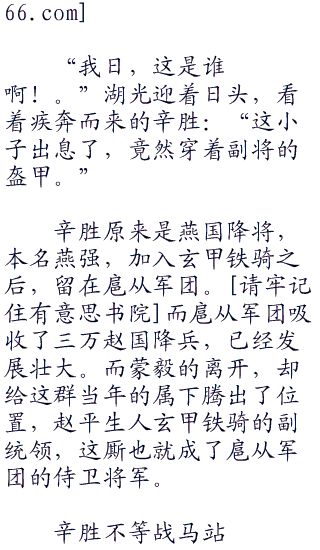 66.com]
“我日，这是谁
啊！。”湖光迎着日头，看
着疾奔而来的辛胜：“这小
子出息了，竟然穿着副将的
盔甲。”
辛胜原来是燕国降将，
本名燕强，加入玄甲铁骑之
后，留在扈从军团。[请牢记
住有意思书院]而扈从军团吸
收了三万赵国降兵，已经发
展壮大。而蒙毅的离开，却
给这群当年的属下腾出了位
置，赵平生人玄甲铁骑的副
统领，这厮也就成了扈从军
团的侍卫将军。
辛胜不等战马站